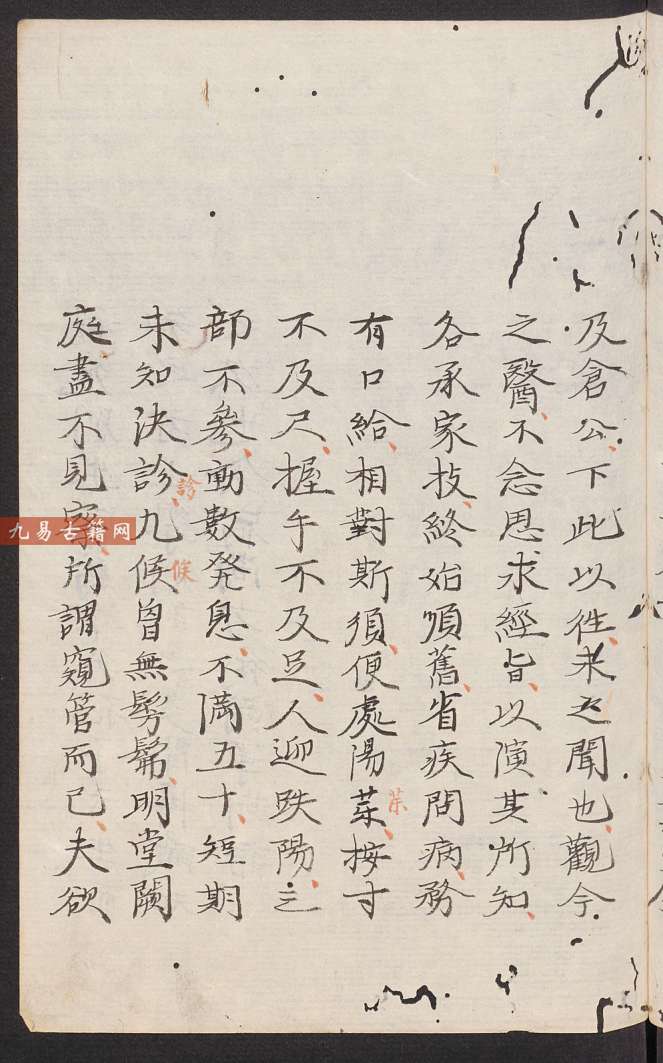 及倉公下此以徃未之聞也觀今
之醫不念思求經旨以演其所知
各承家技終始順舊省疾問病務
有口給相對斯須便處陽藥按寸
不及尺握手不及足人迎趺陽三
部不參動數発息不滿五十短期
未知決診九候曽無髣髴明堂闕
庭盡不見察所謂窺管而已夫欲
診
候
九易古籍网